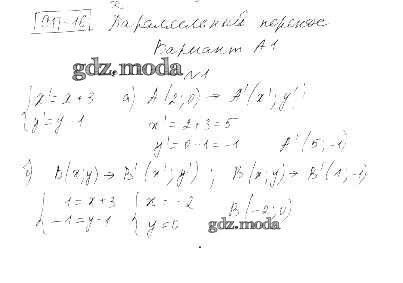 СП-16 Параллельный перенос
Вариант А1
gdz.moda
№1
{x'=x+3 а) A(2;0) → A'(x';y')
{y'=y-1 x'=2+3=5
y'=0-1=-1 A'(5;-1)
б) B(x;y) → B'(x';y'); B(x;y) → B'(1;-1)
{1=x+3 {x=-2 B(-2;0)
{-1=y-1 {y=0
gdz.moda